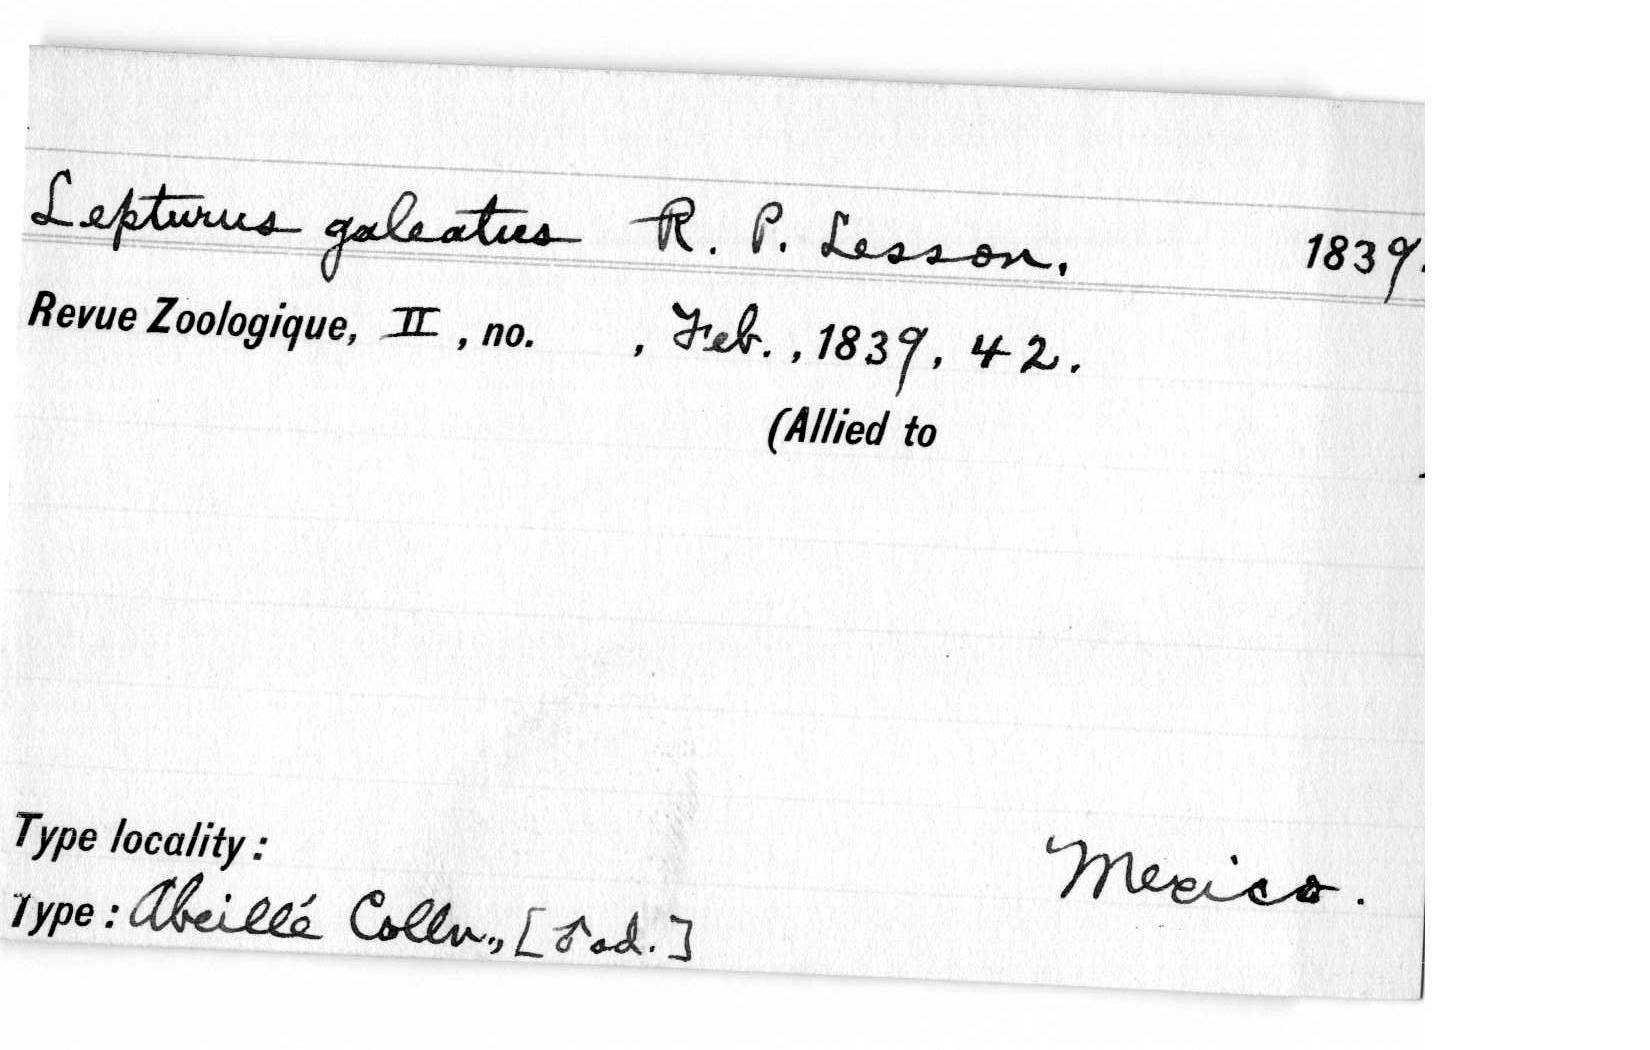 Lepturus galeatus R. P. Lesson. 1839.
Revue Zoologique, II, no. , Feb., 1839, 42.
(Allied to
Type locality: Mexico.
Type: Abeillé Colln., [